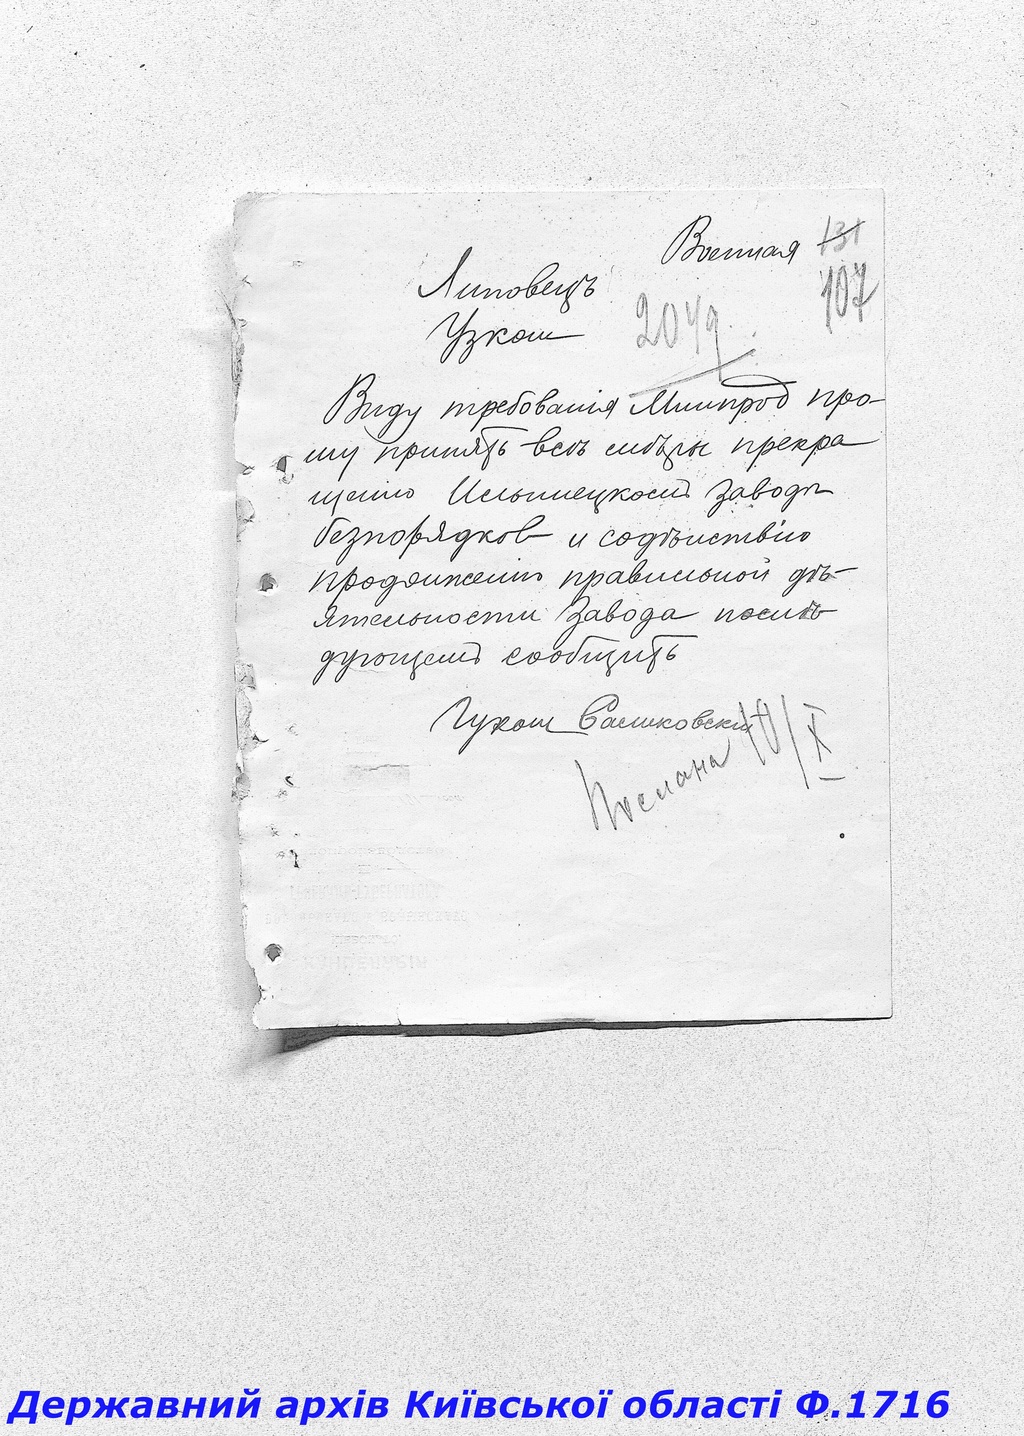 Военная 131
107
Липовецъ
2049
Узком
Виду требованія Минпрод про-
шу принять всѣ мѣры прекра
щенію Ильинецком заводѣ
безпорядков и содѣиствію
продолженію правильной дѣ-
ятельности Завода послѣ
дующем сообщить
Губком Сашковски
Послана 10/X
Державний архів Київської області Ф.1716